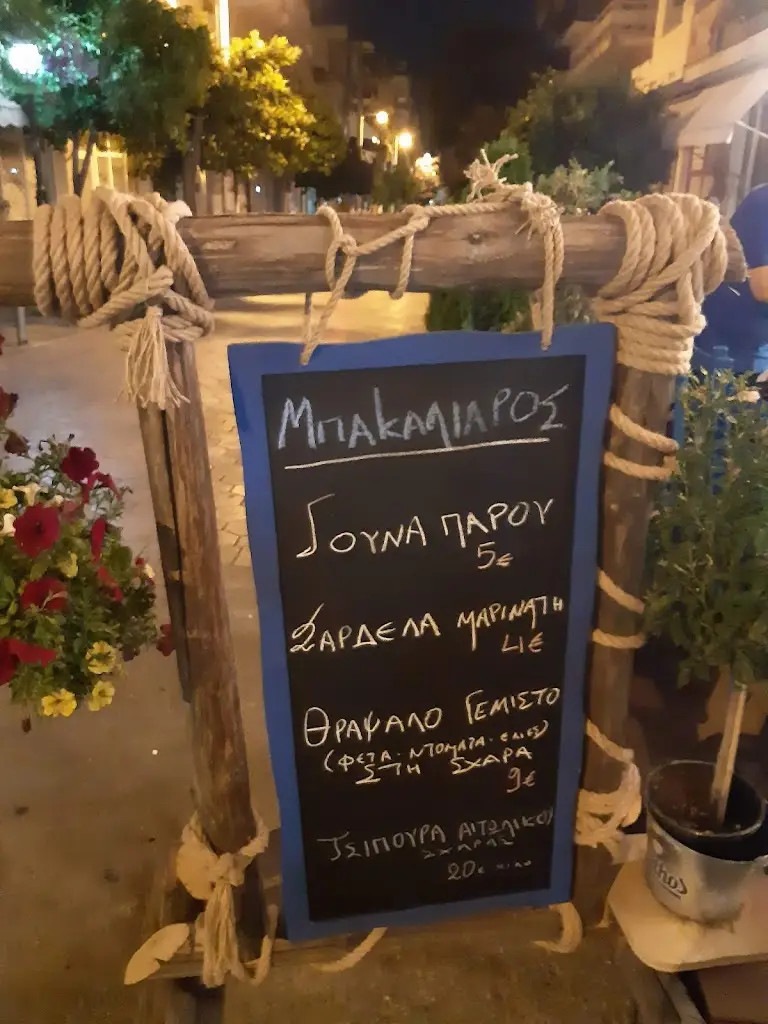 ΜΠΑΚΑΛΙΑΡΟΣ
ΓΟΥΝΑ ΠΑΡΟΥ
5€
ΣΑΡΔΕΛΑ ΜΑΡΙΝΑΤΗ
4€
ΘΡΑΨΑΛΟ ΓΕΜΙΣΤΟ
(ΦΕΤΑ. ΝΤΟΜΑΤΑ. ΕΛΙΕΣ)
ΣΤΗ ΣΧΑΡΑ
9€
ΤΣΙΠΟΥΡΑ ΑΙΤΩΛΙΚΟΥ
ΣΧΑΡΑΣ
20€ ΚΙΛΟ